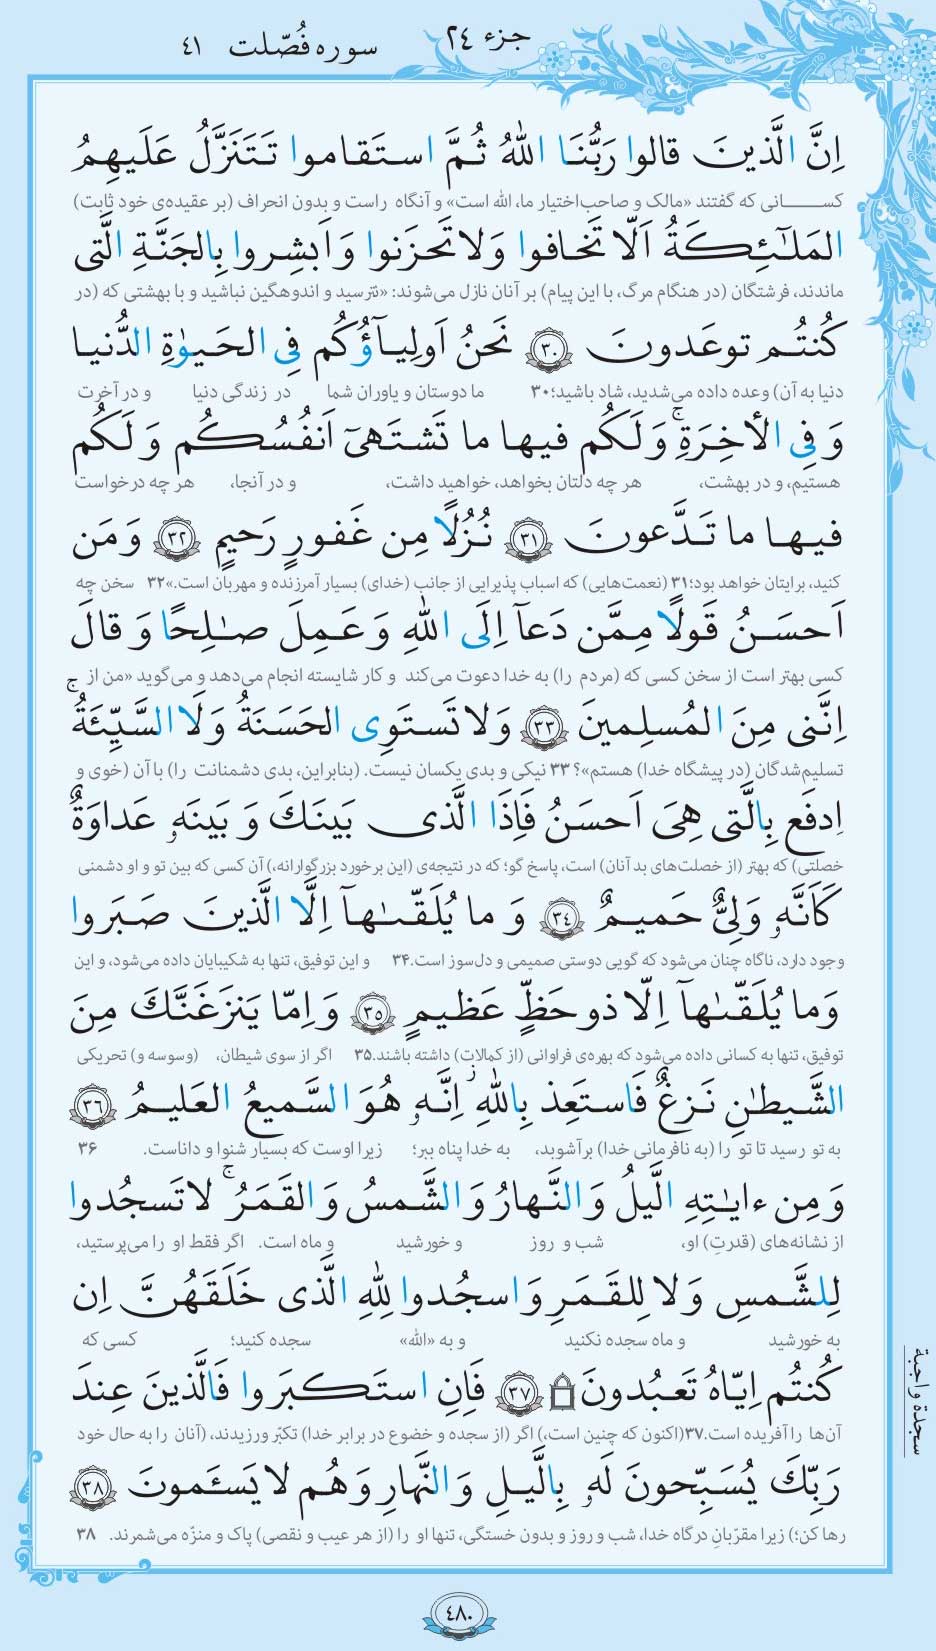 جزء ٢٤
سوره فُصّلت ٤١
اِنَّ الَّذينَ قالوا رَبُّنَا اللّٰهُ ثُمَّ استَقاموا تَتَنَزَّلُ عَلَيهِمُ
کسانی که گفتند «مالک و صاحب‌اختیار ما، الله است» و آنگاه راست و بدون انحراف (بر عقیده‌ی خود ثابت)
المَلٰٓئِكَةُ اَلّا تَخافوا وَلا تَحزَنوا وَ اَبشِروا بِالجَنَّةِ الَّتى
ماندند، فرشتگان (در هنگام مرگ، با این پیام) بر آنان نازل می‌شوند: «نترسید و اندوهگین نباشید و با بهشتی که (در
كُنتُم توعَدونَ ﴿٣٠﴾ نَحنُ اَولِيآؤُكُم فِى الحَيوٰةِ الدُّنيا
دنیا به آن) وعده داده می‌شدید، شاد باشید؛۳۰ ما دوستان و یاوران شما در زندگی دنیا و در آخرت
وَ فِى الأخِرَةِ ۚ وَلَكُم فيها ما تَشتَهىٓ اَنفُسُكُم وَ لَكُم
هستیم، و در بهشت، هر چه دلتان بخواهد، خواهید داشت، و در آنجا، هر چه درخواست
فيها ما تَدَّعونَ ﴿٣١﴾ نُزُلًا مِن غَفورٍ رَحيمٍ ﴿٣٢﴾ وَ مَن
کنید، برایتان خواهد بود؛۳۱ (نعمت‌هایی) که اسباب پذیرایی از جانب (خدای) بسیار آمرزنده و مهربان است.»۳۲ سخن چه
اَحسَنُ قَولًا مِمَّن دَعآ اِلَى اللّٰهِ وَ عَمِلَ صٰلِحًا وَ قالَ
کسی بهتر است از سخن کسی که (مردم را) به خدا دعوت می‌کند و کار شایسته انجام می‌دهد و می‌گوید «من از
اِنَّنى مِنَ المُسلِمينَ ﴿٣٣﴾ وَلا تَستَوِى الحَسَنَةُ وَلَا السَّيِّئَةُ ۚ
تسلیم‌شدگان (در پیشگاه خدا) هستم»؟ ۳۳ نیکی و بدی یکسان نیست. (بنابراین، بدی دشمنانت را) با آن (خوی و
اِدفَع بِالَّتى هِىَ اَحسَنُ فَاِذَا الَّذى بَينَكَ وَ بَينَهٗ عَداوَةٌ
خصلتی) که بهتر (از خصلت‌های بد آنان) است، پاسخ گو؛ که در نتیجه‌ی (این برخورد بزرگوارانه،) آن کسی که بین تو و او دشمنی
كَاَنَّهٗ وَلِىٌّ حَميمٌ ﴿٣٤﴾ وَ ما يُلَقّىٰهآ اِلَّا الَّذينَ صَبَروا
وجود دارد، ناگاه چنان می‌شود که گویی دوستی صمیمی و دل‌سوز است.۳۴ و این توفیق، تنها به شکیبایان داده می‌شود، و این
وَما يُلَقّىٰهآ اِلّا ذو حَظٍّ عَظيمٍ ﴿٣٥﴾ وَ اِمّا يَنزَغَنَّكَ مِنَ
توفیق، تنها به کسانی داده می‌شود که بهره‌ی فراوانی (از کمالات) داشته باشند.۳۵ اگر از سوی شیطان، (وسوسه و) تحریکی
الشَّيطٰنِ نَزغٌ فَاستَعِذ بِاللّٰهِ ۖ اِنَّهٗ هُوَ السَّميعُ العَليمُ ﴿٣٦﴾
به تو رسید تا تو را (به نافرمانی خدا) برآشوبد، به خدا پناه ببر؛ زیرا اوست که بسیار شنوا و داناست. ۳۶
وَ مِن ءايٰتِهِ الَّيلُ وَ النَّهارُ وَ الشَّمسُ وَ القَمَرُ ۚ لا تَسجُدوا
از نشانه‌های (قدرتِ) او، شب و روز و خورشید و ماه است. اگر فقط او را می‌پرستید،
لِلشَّمسِ وَلا لِلقَمَرِ وَ اسجُدوا لِلّٰهِ الَّذى خَلَقَهُنَّ اِن
به خورشید و ماه سجده نکنید و به «الله» سجده کنید؛ کسی که
كُنتُم اِيّاهُ تَعبُدونَ ۩ ﴿٣٧﴾ فَاِنِ استَكبَروا فَالَّذينَ عِندَ
آن‌ها را آفریده است.۳۷(اکنون که چنین است،) اگر (از سجده و خضوع در برابر خدا) تکبّر ورزیدند، (آنان را به حال خود
رَبِّكَ يُسَبِّحونَ لَهٗ بِالَّيلِ وَ النَّهارِ وَ هُم لا يَسـَٔمونَ ﴿٣٨﴾
رها کن؛) زیرا مقرّبانِ درگاه خدا، شب و روز و بدون خستگی، تنها او را (از هر عیب و نقصی) پاک و منزّه می‌شمرند. ۳۸
سجدة واجبة
٤٨٠